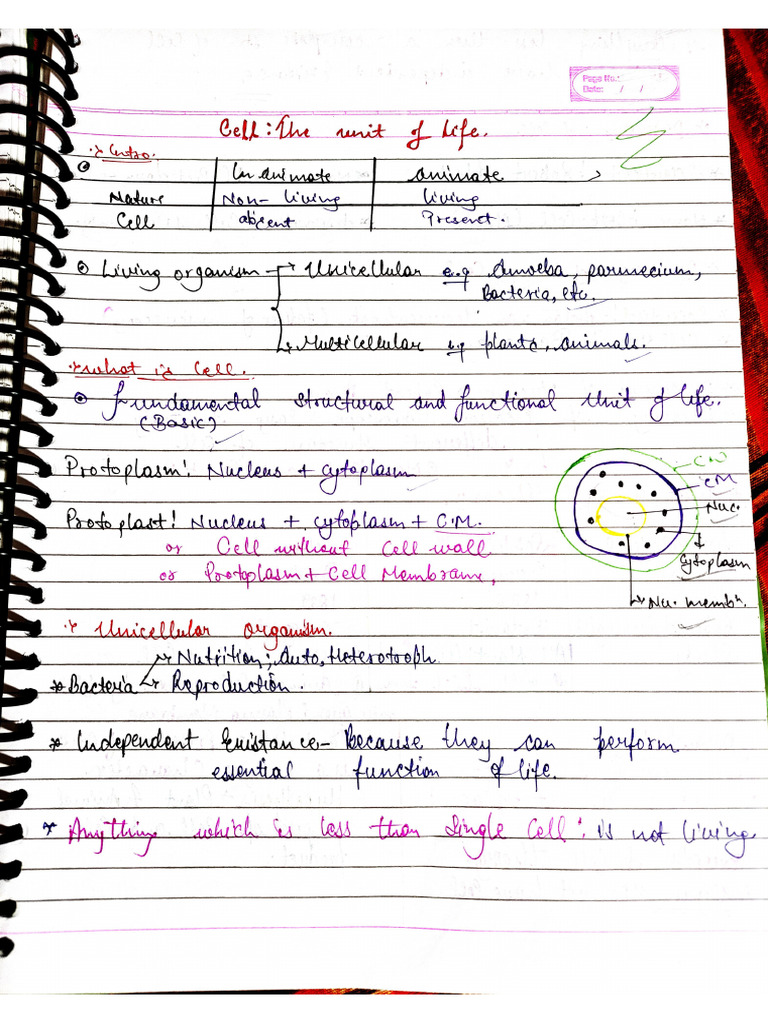 Page No.:
Date: / /
Cell: The unit of life.
Intro.
Inanimate animate
Nature Non-living living
Cell abcent Present.
Living organism Unicellular e.g Amoeba, parmecium,
Bacteria, etc.
Multicellular eg plants, animals.
what is Cell.
Fundamental structural and functional Unit of life.
(Basic)
Protoplasm: Nucleus + cytoplasm
Protoplast: Nucleus + cytoplasm + C.M.
or Cell without Cell wall
or Protoplasm + Cell Membrane,
CW
CM
Nuc.
Cytoplasm
Nu. membn.
Unicellular organism.
Nutrition; Auto, Heterotroph
* Bacteria Reproduction.
* Independent Existance - Because they can perform
essential function of life.
* Anything which is less than Single Cell: is not living.